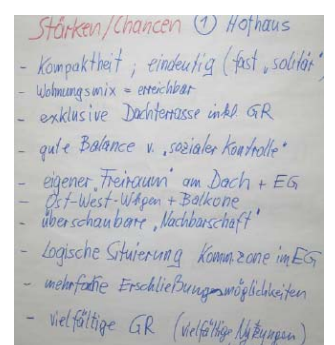 Stärken/Chancen ① Hofhaus
- Kompaktheit ; eindeutig (fast „solitär“)
- Wohnungsmix = erreichbar
- exklusive Dachterrasse inkl GR
- gute Balance v. „sozialer Kontrolle“
- eigener „Freiraum“ am Dach + EG
- Ost-West-Wgen + Balkone
- überschaubare „Nachbarschaft“
- Logische Situierung Komm.zone im EG
- mehrfache Erschließungsmöglichkeiten
- vielfältige GR (vielfältige Nutzungen)